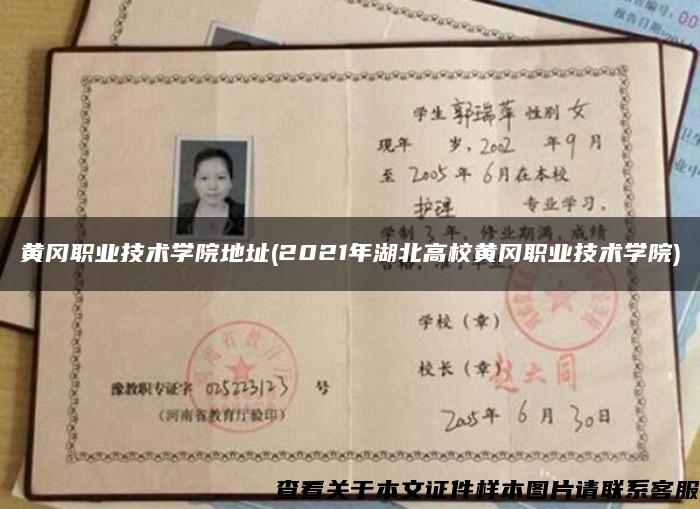 告编号:00
报告日期:
学生 郭瑞萍 性别 女
现年 岁，2002 年9月
至 2005年 6月在本校
护理 专业学习，
学制 3 年，修业期满，成绩
黄冈职业技术学院地址(2021年湖北高校黄冈职业技术学院)
学校（章）
校长（章）赵大同
河南省教育厅
豫教职专证字 025223123 号
（河南省教育厅验印）
2005年 6 月 30日
查看关于本文证件样本图片请联系客服